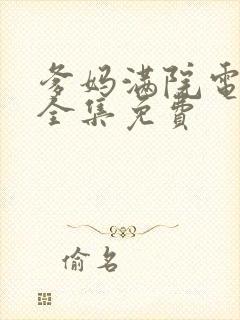 爹妈满院电
全集免费
偷名